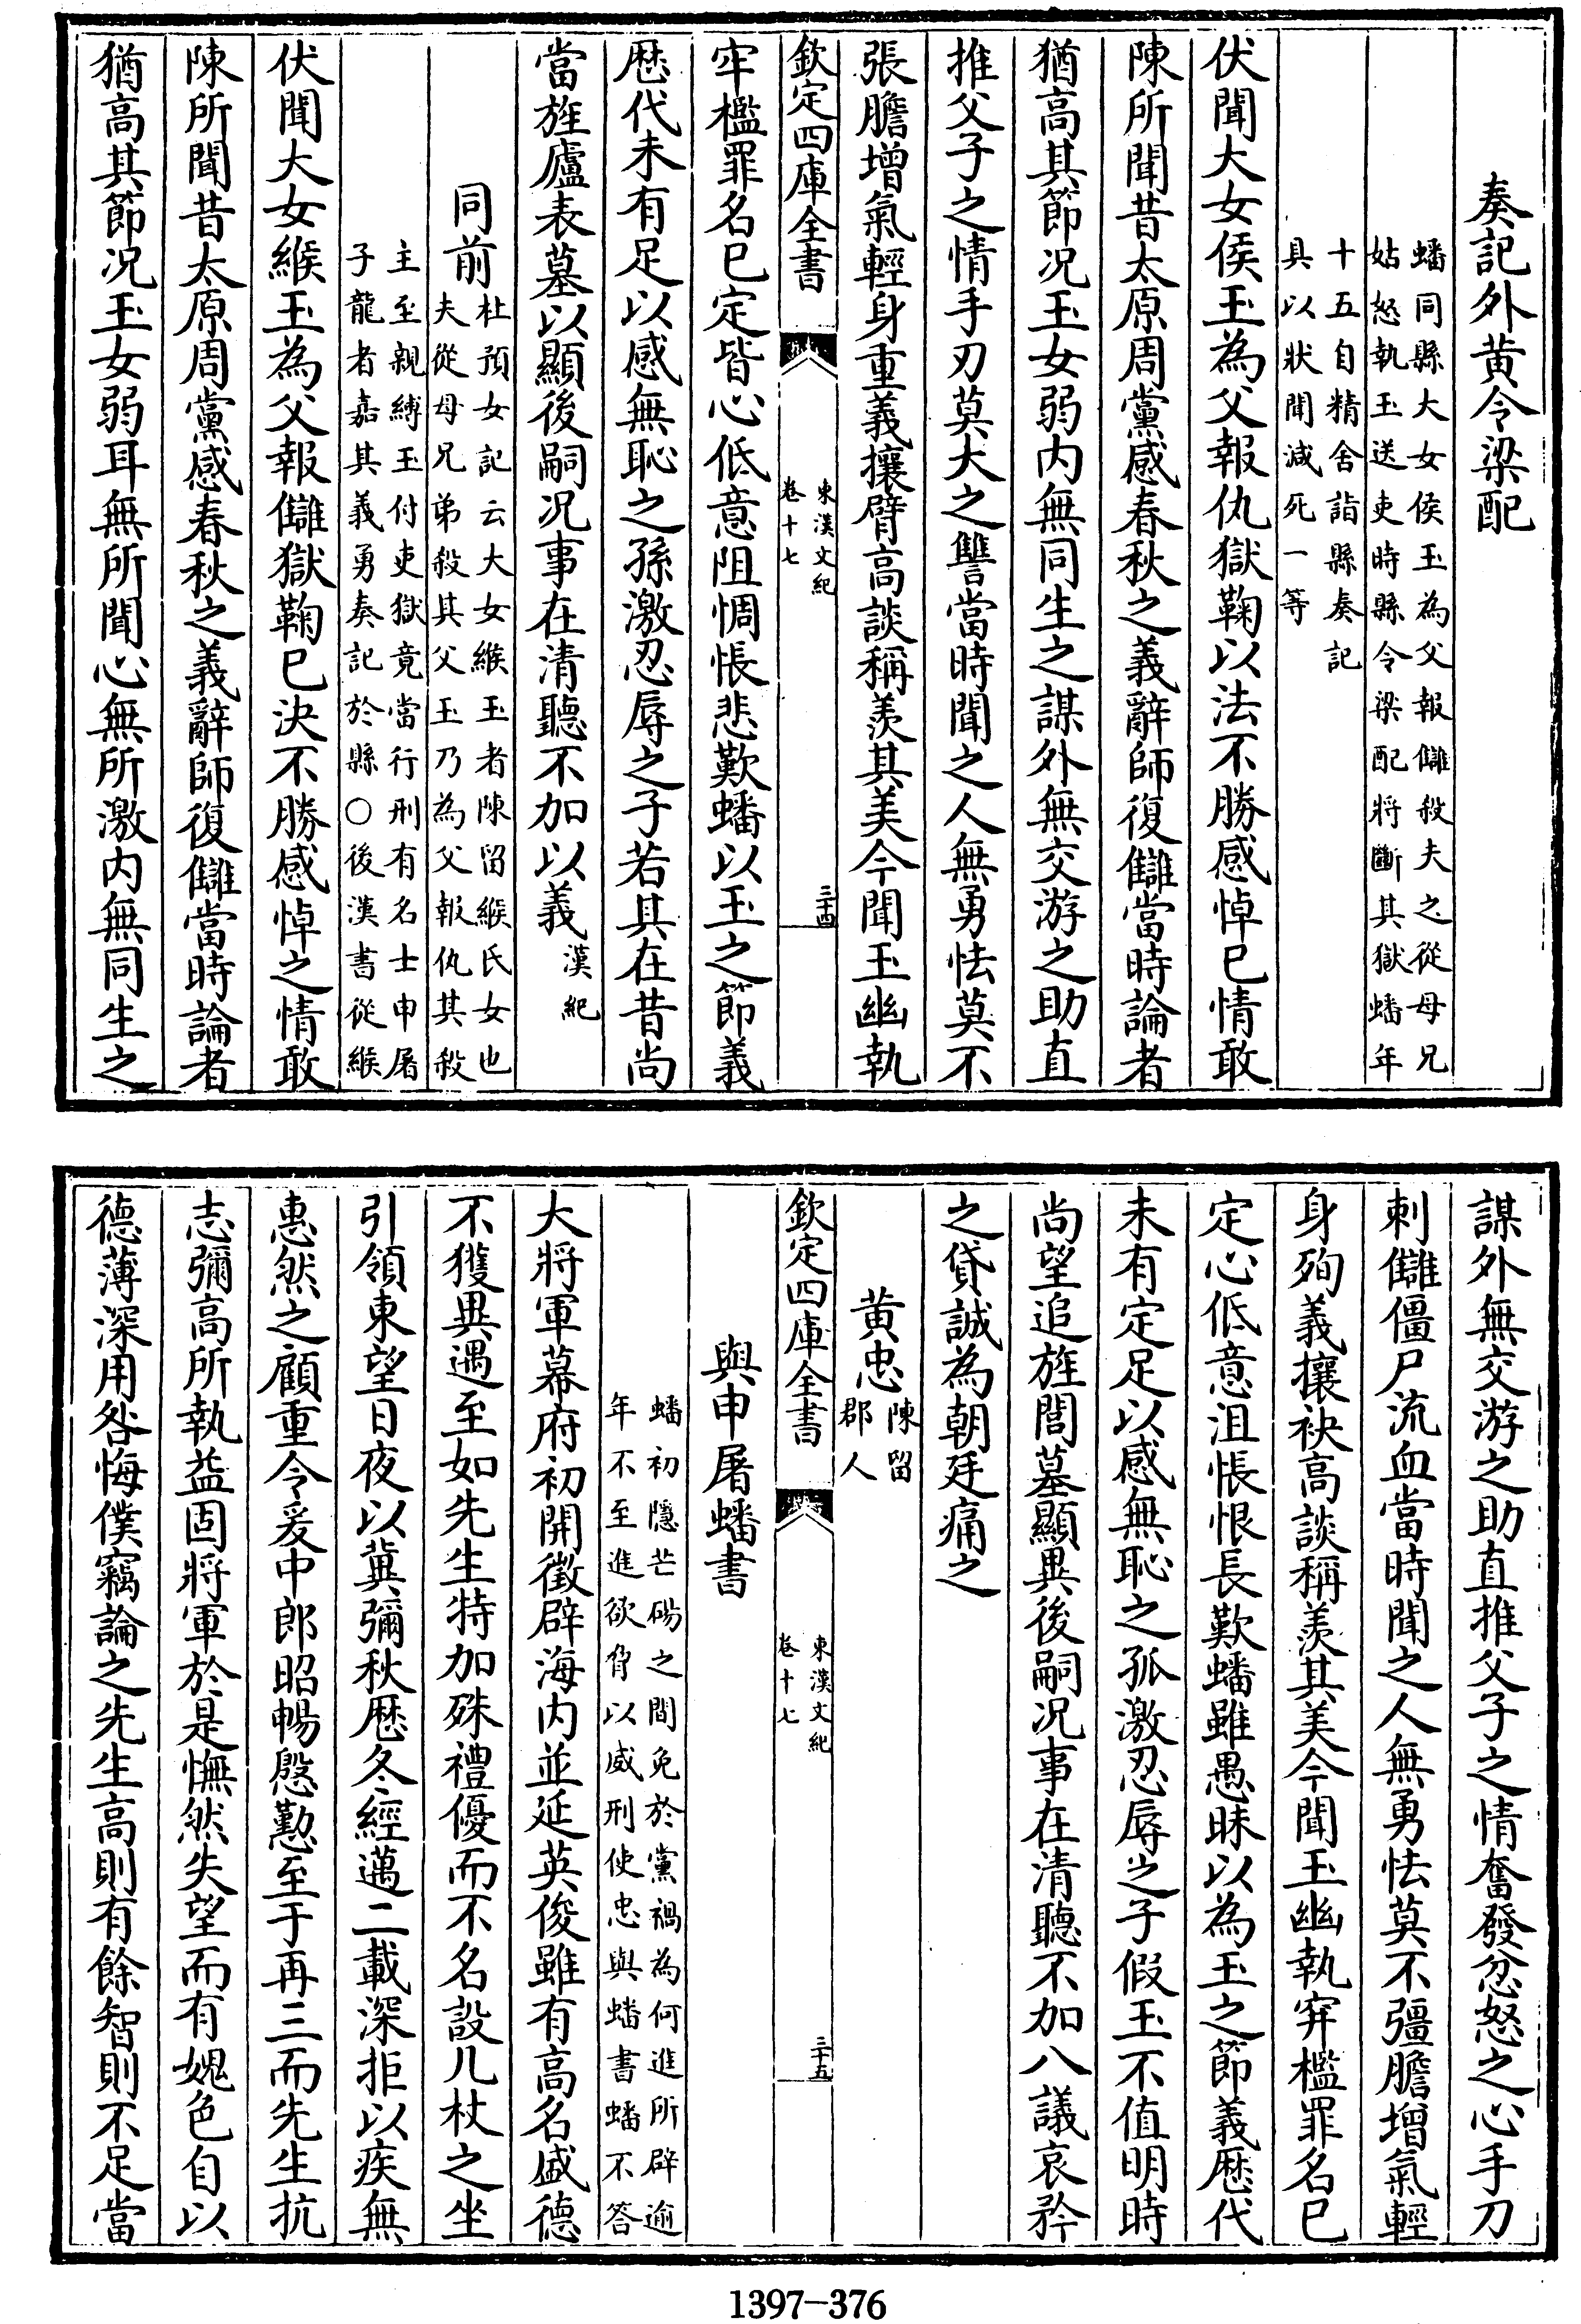 奏記外黄令梁配
蟠同縣大女侯玉為父報讎殺夫之從母兄
姑怒執玉送吏時縣令梁配將斷其獄蟠年
十五自精舍詣縣奏記
具以狀聞減死一等
伏聞大女侯玉為父報仇獄鞠以法不勝感悼已情敢
陳所聞昔太原周黨感春秋之義辭師復讎當時論者
猶高其節况玉女弱内無同生之謀外無交游之助直
推父子之情手刃莫大之讐當時聞之人無勇怯莫不
張膽增氣輕身重義攘臂高談稱羨其美今聞玉幽執
欽定四庫全書
東漢文紀
卷十七
三十四
牢檻罪名已定皆心低意阻惆悵悲歎蟠以玉之節義
歴代未有足以感無恥之孫激忍辱之子若其在昔尚
當旌廬表墓以顯後嗣况事在清聽不加以義漢紀
同前
杜預女記云大女緱玉者陳留緱氏女也
夫從母兄弟殺其父玉乃為父報仇其殺
主至親縛玉付吏獄竟當行刑有名士申屠
子龍者嘉其義勇奏記於縣○後漢書從緱
伏聞大女緱玉為父報讎獄鞠已決不勝感悼之情敢
陳所聞昔太原周黨感春秋之義辭師復讎當時論者
猶高其節况玉女弱耳無所聞心無所激内無同生之
謀外無交游之助直推父子之情奮發忿怒之心手刀
刺讎僵尸流血當時聞之人無勇怯莫不彊膽增氣輕
身殉義攘袂高談稱羨其美今聞玉幽執穽檻罪名已
定心低意沮悵恨長歎蟠雖愚昧以為玉之節義歴代
未有定足以感無恥之孤激忍辱之子假玉不值明時
尚望追旌閭墓顯異後嗣况事在清聽不加八議哀矜
之貸誠為朝廷痛之
黄忠
陳留
郡人
欽定四庫全書
東漢文紀
卷十七
三十五
與申屠蟠書
蟠初隱芒碭之間免於黨禍為何進所辟逾
年不至進欲脅以威刑使忠與蟠書蟠不答
大將軍幕府初開徵辟海内並延英俊雖有高名盛德
不獲異遇至如先生特加殊禮優而不名設几杖之坐
引領東望日夜以冀彌秋歴冬經邁二載深拒以疾無
惠然之顧重令爰中郎昭暢慇懃至于再三而先生抗
志彌高所執益固將軍於是憮然失望而有媿色自以
德薄深用咎悔僕竊論之先生高則有餘智則不足當
1397—376